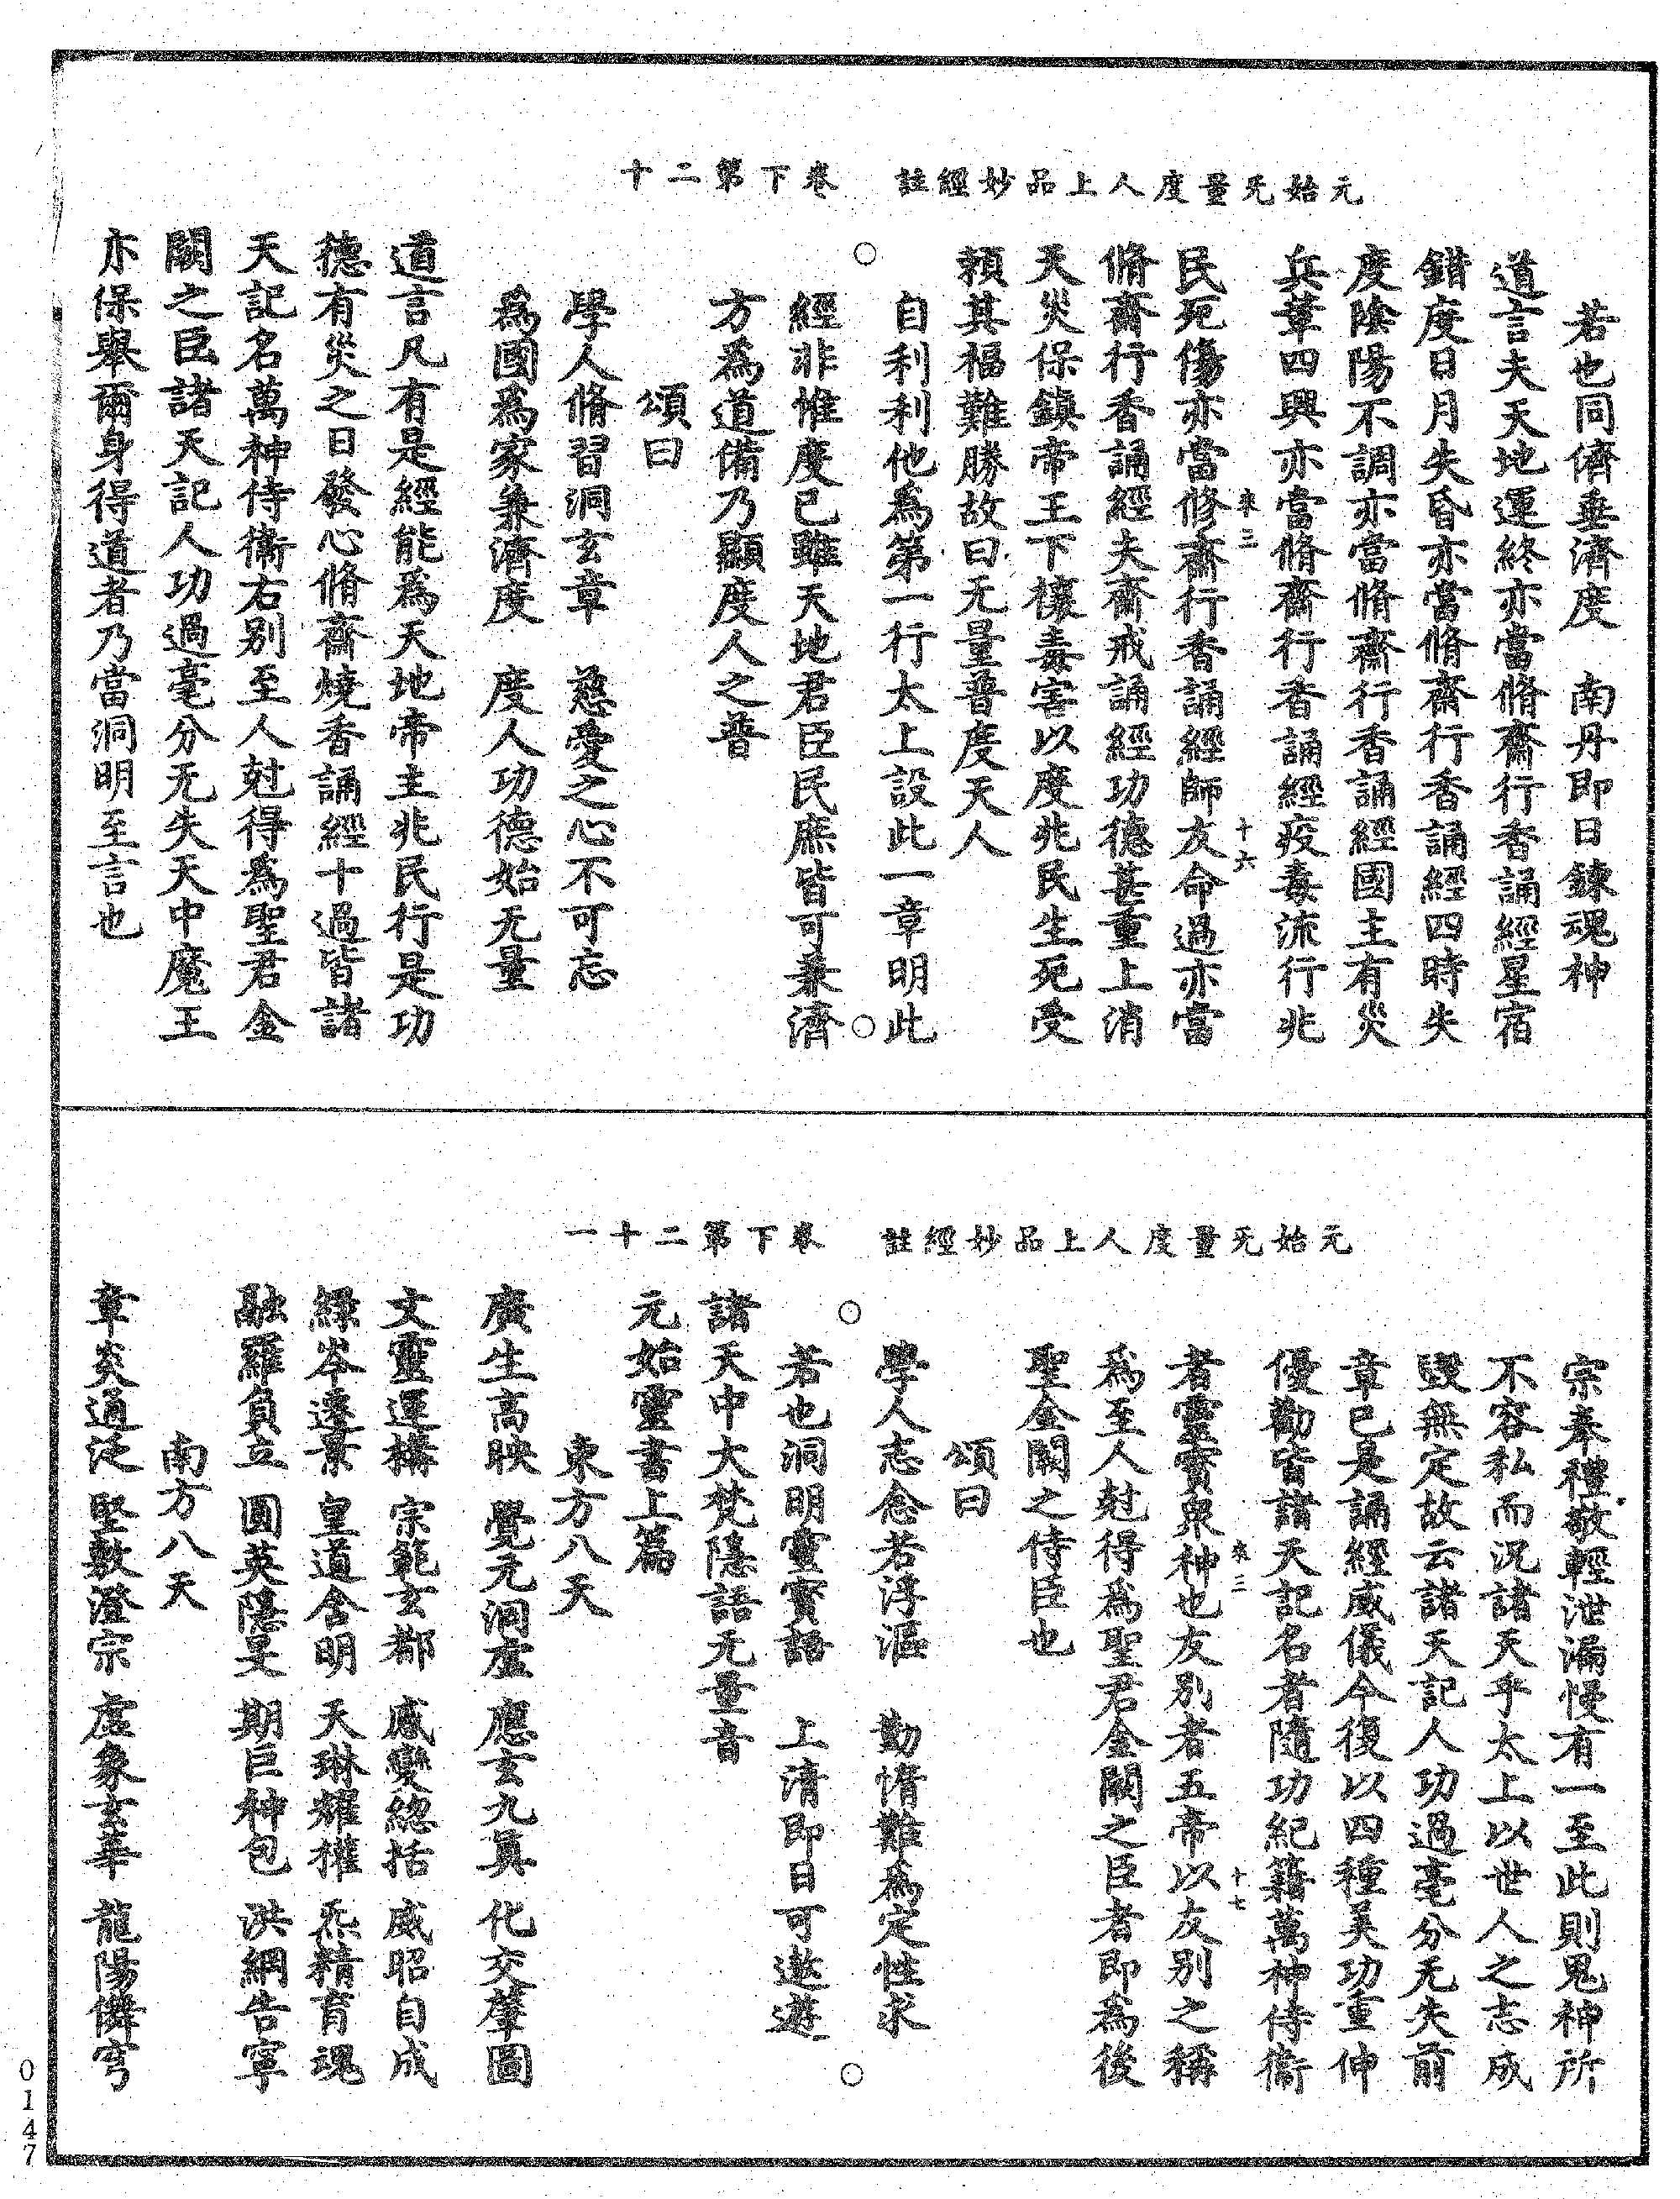 元始无量度人上品妙經註　卷下第二十
若也同儕垂濟度　南丹即日鍊魂神
道言夫天地運終亦當脩齋行香誦經星宿
錯度日月失昏亦當脩齋行香誦經四時失
度陰陽不調亦當脩齋行香誦經國主有災
兵革四興亦當脩齋行香誦經疫毒流行兆
來三　十六
民死傷亦當修齋行香誦經師友命過亦當
脩齋行香誦經夫齋戒誦經功德甚重上消
天災保鎮帝王下禳毒害以度兆民生死受
賴其福難勝故曰无量普度天人
自利利他為第一行太上設此一章明此
經非惟度已雖天地君臣民庶皆可兼濟
方為道備乃顯度人之普
頌曰
學人脩習洞玄章　慈愛之心不可忘
為國為家兼濟度　度人功德始无量
道言凡有是經能為天地帝主兆民行是功
德有災之日發心脩齋燒香誦經十過皆諸
天記名萬神侍衛右別至人尅得為聖君金
闕之臣諸天記人功過毫分无失天中魔王
亦保舉爾身得道者乃當洞明至言也
元始无量度人上品妙經註　卷下第二十一
宗奉禮敬輕泄漏慢有一至此則鬼神所
不容私而況諸天乎太上以世人之志成
毀無定故云諸天記人功過毫分无失前
章已是誦經威儀今復以四種美功重伸
優勸皆諸天記名者隨功紀籍萬神侍衛
來三　十七
者靈寶衆神也友別者五帝以友別之稱
為至人尅得為聖君金闕之臣者即為後
聖金闕之侍臣也
頌曰
學人志念若浮漚　勤惰難為定性求
若也洞明靈寶語　上清即日可遨遊
諸天中大梵隱語无量音
元始靈書上篇
東方八天
廣生高映　覺元洞虛　應玄九真　化交肇圖
文靈運構　宗範玄都　感變總括　威昭自成
綠岑達景　皇道含明　天琳耀權　炁精育魂
融羅負立　圓英隱旻　期巨神包　洪網告寧
南方八天
章炎通泛　堅數澄宗　虛象玄華　龍陽儛穹
0147